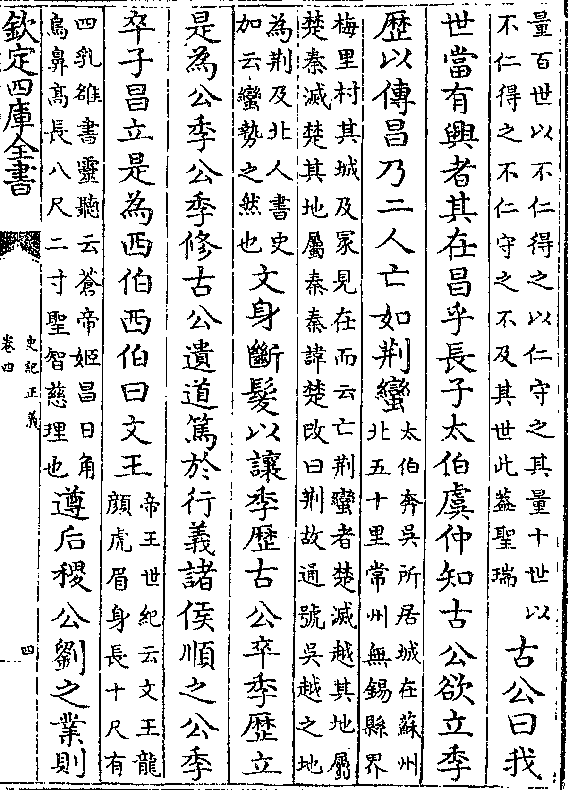 量百世以不仁得之以仁守之其量十世以
不仁得之不仁守之不及其世此蓋聖瑞
古公曰我
世當有興者其在昌乎長子太伯虞仲知古公欲立季
歷以傳昌乃二人亡如荆蠻
太伯奔吳所居城在蘇州
北五十里常州無錫縣界
梅里村其城及冡見在而云亡荆蠻者楚滅越其地屬
楚秦滅楚其地屬秦秦諱楚改曰荆故通號吳越之地
為荆及北人書史
加云蠻勢之然也
文身斷髮以讓季歷古公卒季歷立
是為公季公季修古公遺道篤於行義諸侯順之公季
卒子昌立是為西伯西伯曰文王
帝王世紀云文王龍
顔虎眉身長十尺有
四乳雒書靈聽云蒼帝姬昌日角
鳥鼻髙長八尺二寸聖智慈理也
遵后稷公劉之業則
欽定四庫全書
史記正義
卷四
四